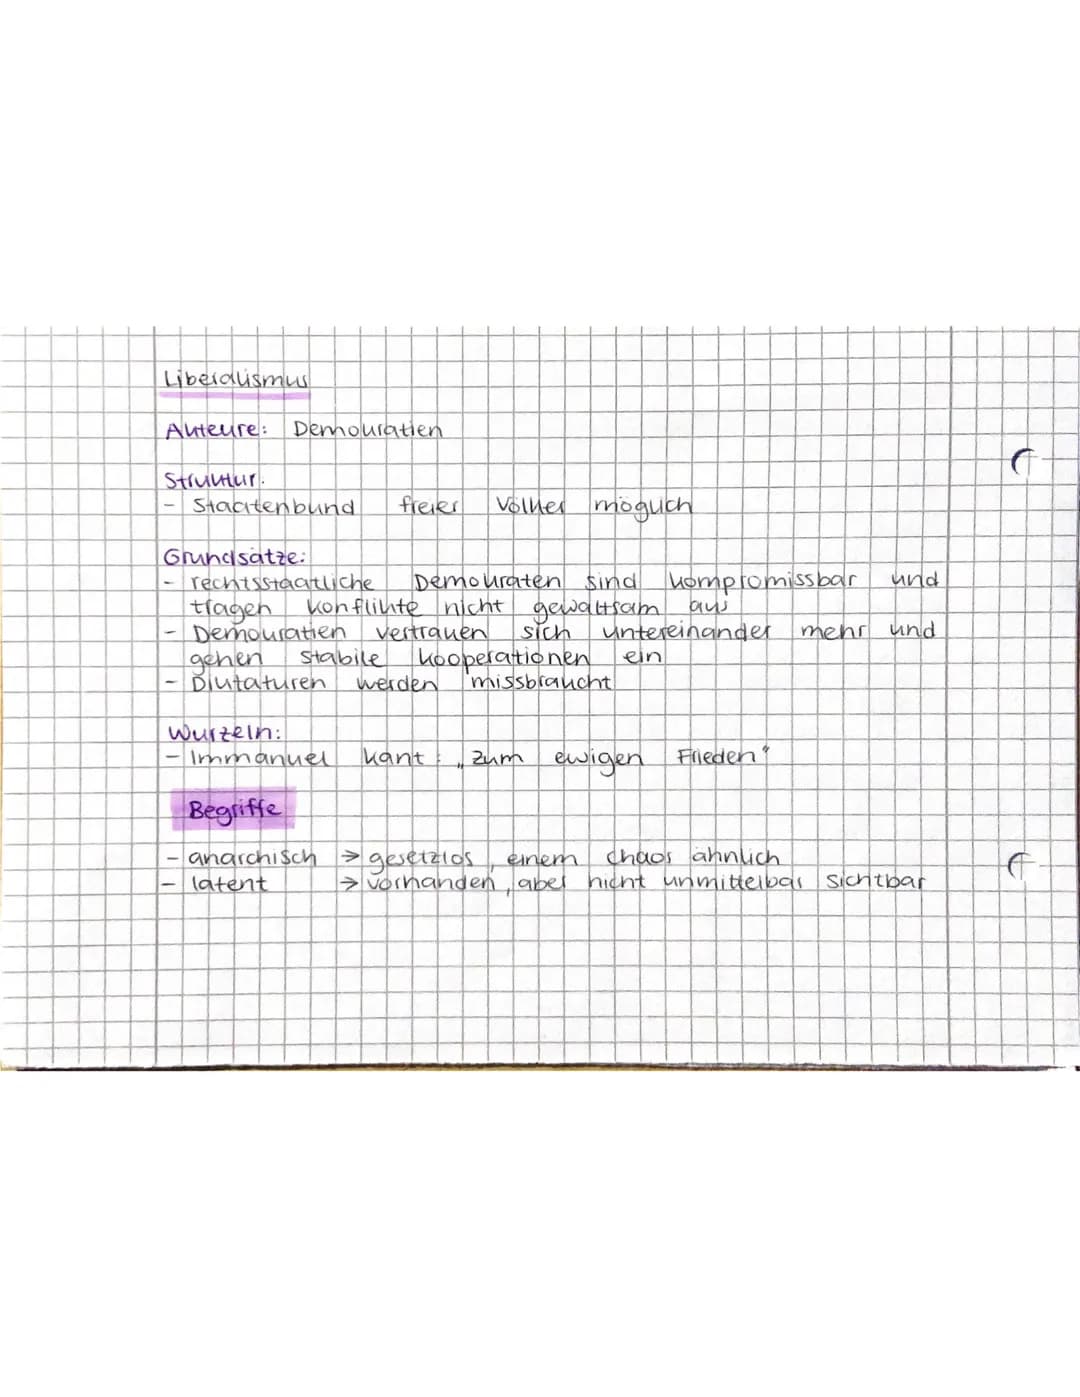 Liberalismus
Akteure: Demokratien
Struktur:
- Staatenbund freier Völker möglich
Grundsätze:
- rechtsstaatliche Demokraten sind kompromissbar und
tragen Konflikte nicht gewaltsam aus
- Demokratien vertrauen sich untereinander mehr und
gehen stabile Kooperationen ein
- Diktaturen werden missbraucht
Wurzeln:
- Immanuel Kant: „Zum ewigen Frieden"
Begriffe
- anarchisch → gesetzlos, einem Chaos ähnlich
- latent → vorhanden, aber nicht unmittelbar sichtbar